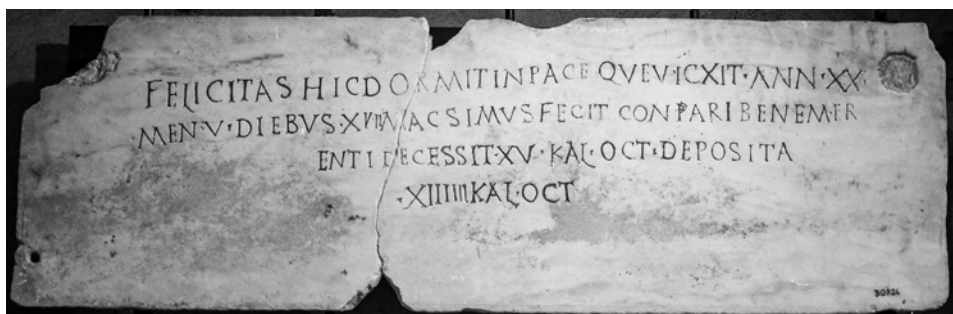 FELICITAS HIC DORMIT IN PACE QVEVICXIT·ANN·XX·
MEN·V·DIEBVS·XVIII MACSIMVS FECIT CONPARI BENEMER
ENTI DECESSIT·XV·KAL·OCT·DEPOSITA
·XIIIIII KAL·OCT
30826